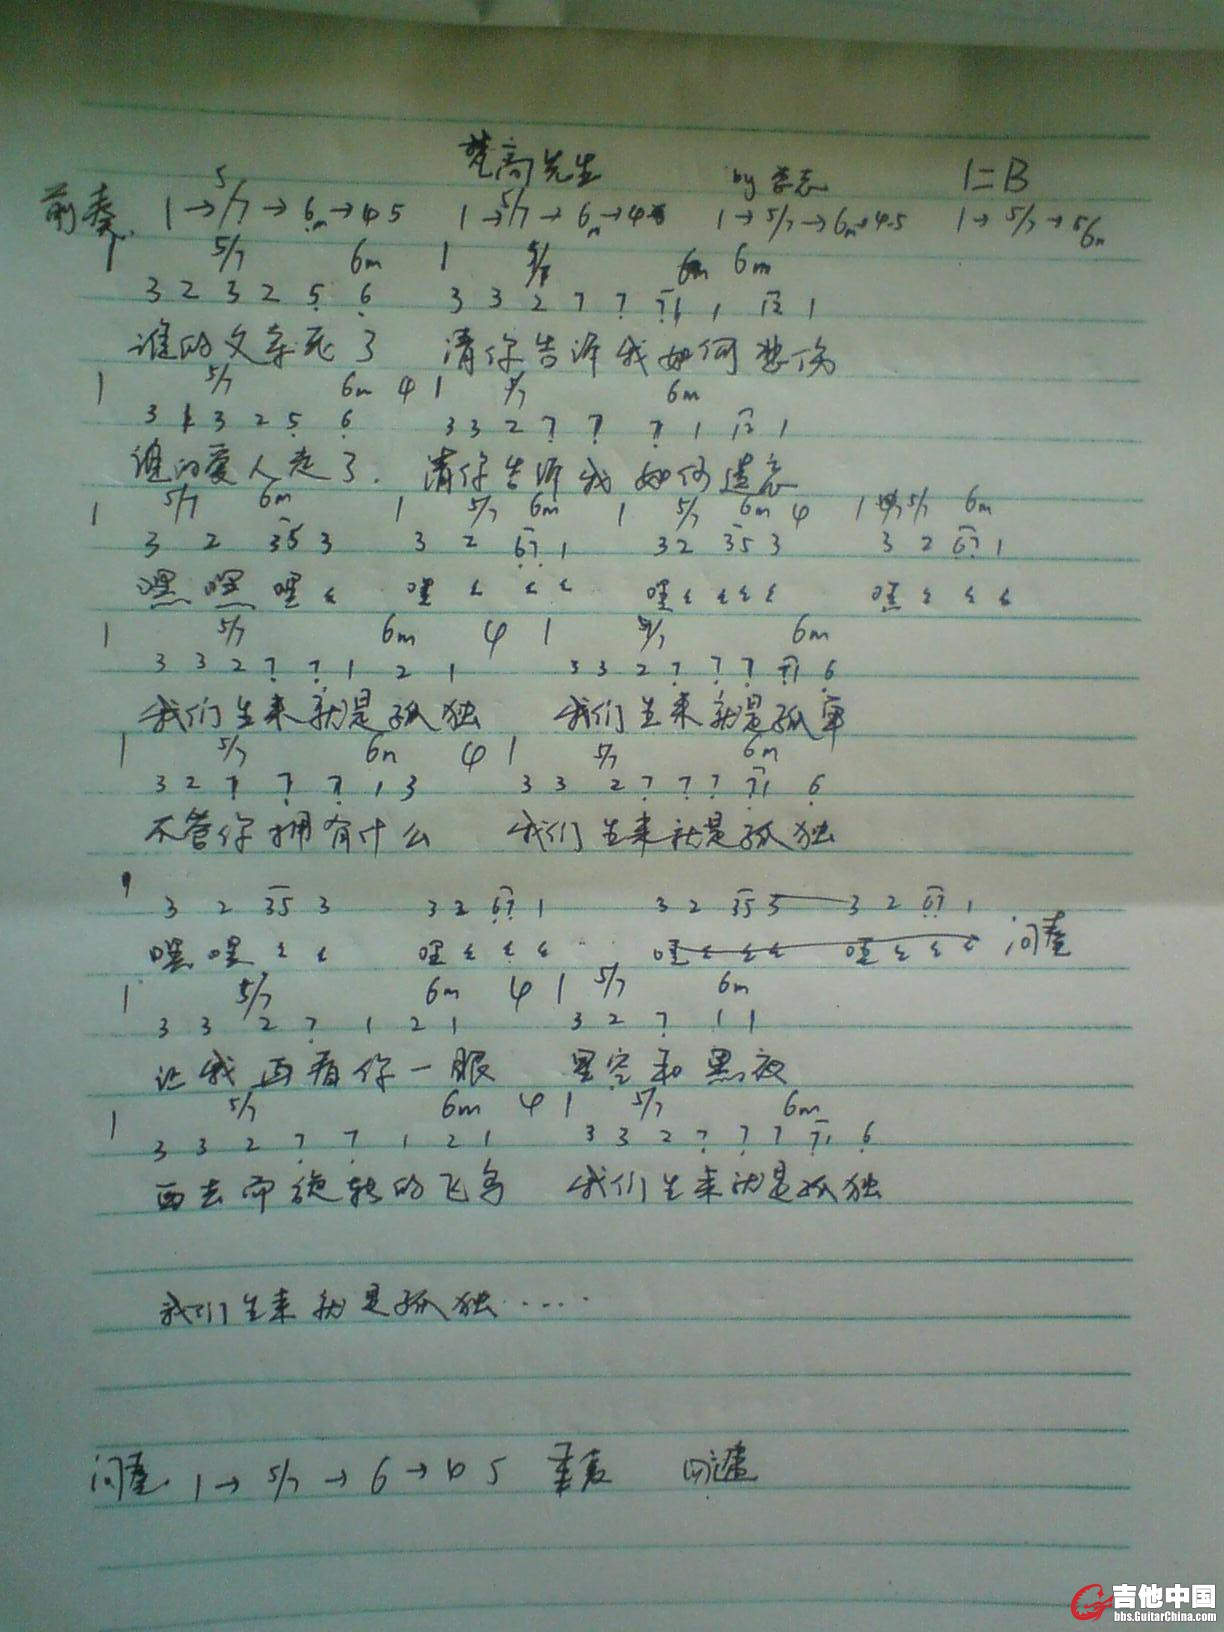 梵高先生 by 李志 1=B
前奏. 1→5/7→6m→45 1→5/7→6m→4 1→5/7→6m→4.5 1→5/7→6m
1 5/7 6m 1 5/7 6m
3 2 3 2 5 6 3 3 2 7 7 71 1 12 1
谁的父亲死了 请你告诉我如何悲伤
1 5/7 6m 4 1 5/7 6m
3 1 3 2 5 6 3 3 2 7 7 7 1 12 1
谁的爱人走了. 请你告诉我如何遗忘
1 5/7 6m 1 5/7 6m 1 5/7 6m 4 1 5/7 6m
3 2 35 3 3 2 67 1 3 2 35 3 3 2 67 1
嘿 嘿 嘿 嘿 嘿 嘿
1 5/7 6m 4 1 5/7 6m
3 3 2 7 7 1 2 1 3 3 2 7 7 7 71 6
我们生来就是孤独 我们生来就是孤单
1 5/7 6m 4 1 5/7 6m
3 2 7 7 7 1 3 3 3 2 7 7 7 71 6
不管你拥有什么 我们生来就是孤独
3 2 35 3 3 2 67 1 3 2 35 3 3 2 67 1
嘿 嘿 嘿 嘿 嘿 间奏
1 5/7 6m 4 1 5/7 6m
3 3 2 7 1 2 1 3 2 7 1 1
让我再看你一眼 星空和黑夜
1 5/7 6m 4 1 5/7 6m
3 3 2 7 7 1 2 1 3 3 2 7 7 7 71 6
西去而旋转的飞鸟 我们生来就是孤独
我们生来就是孤独·····
间奏. 1→5/7→6→4 5 重复
吉他中国
bbs.GuitarChina.com